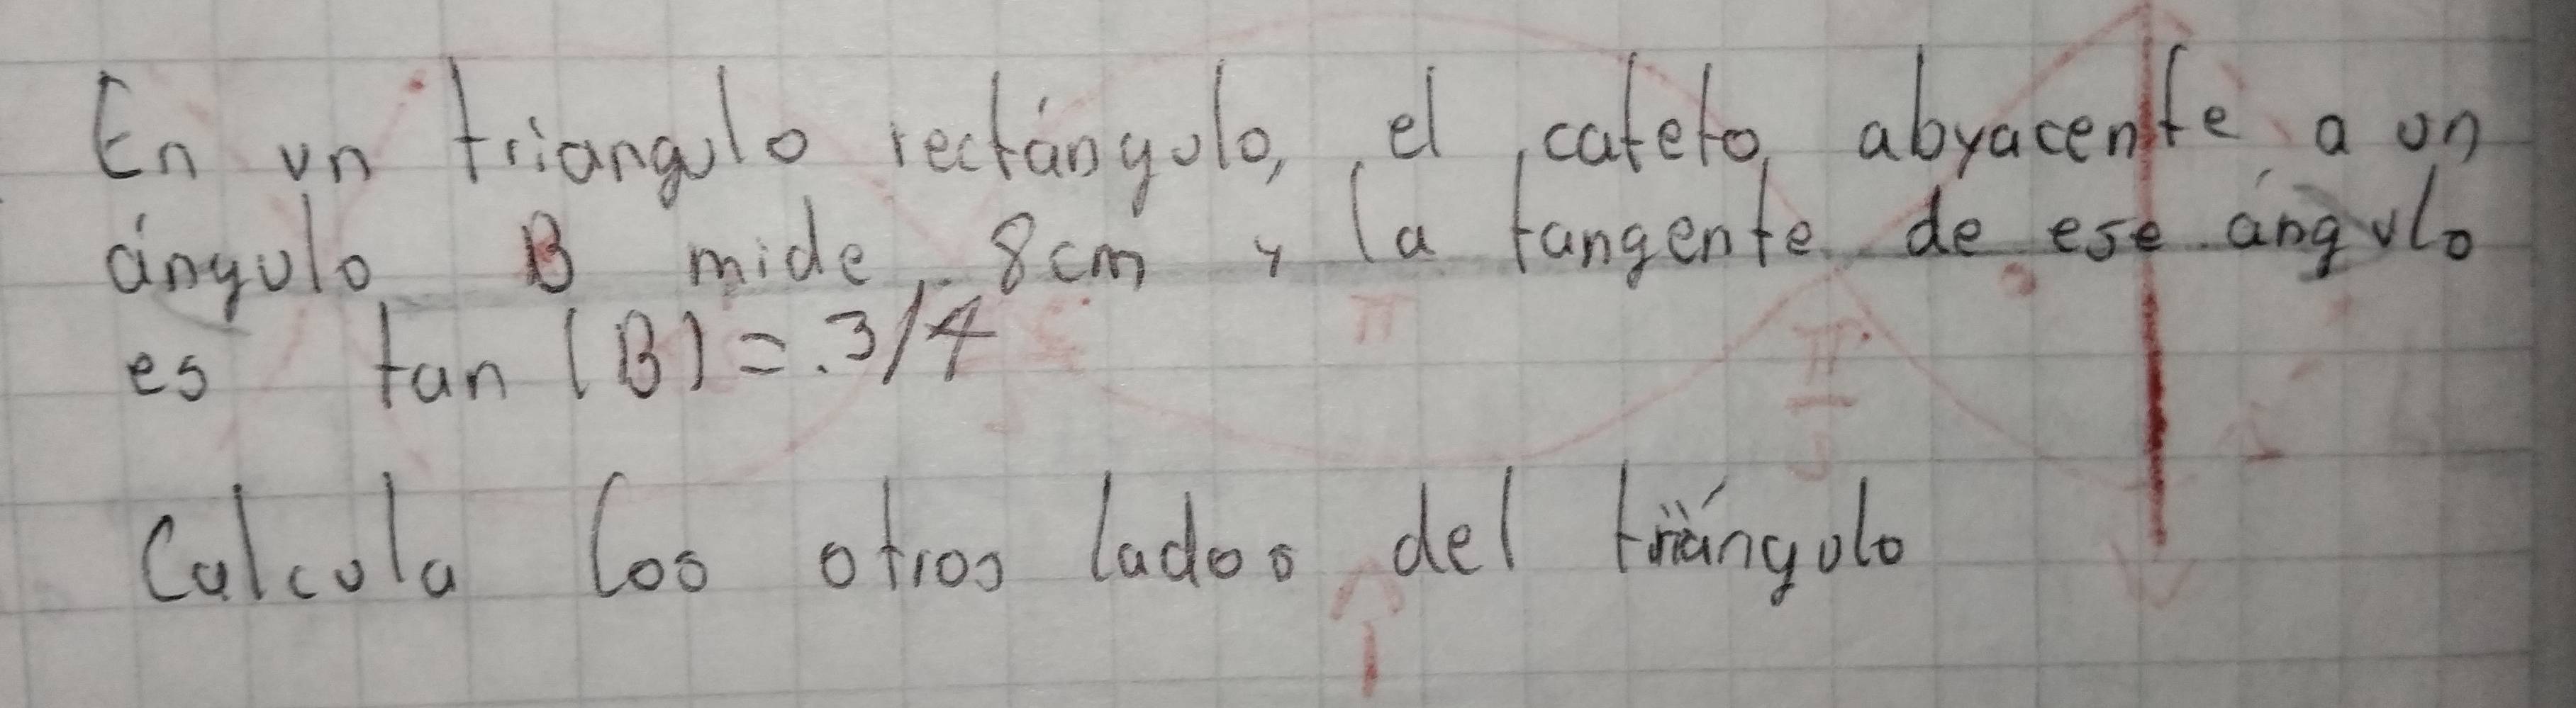 En un triangulo rectángulo, el cateto abyacente a un
ángulo B mide 8cm y la tangente de ese ángulo
es tan (B) = 3/4
Calcula los otros lados del triángulo